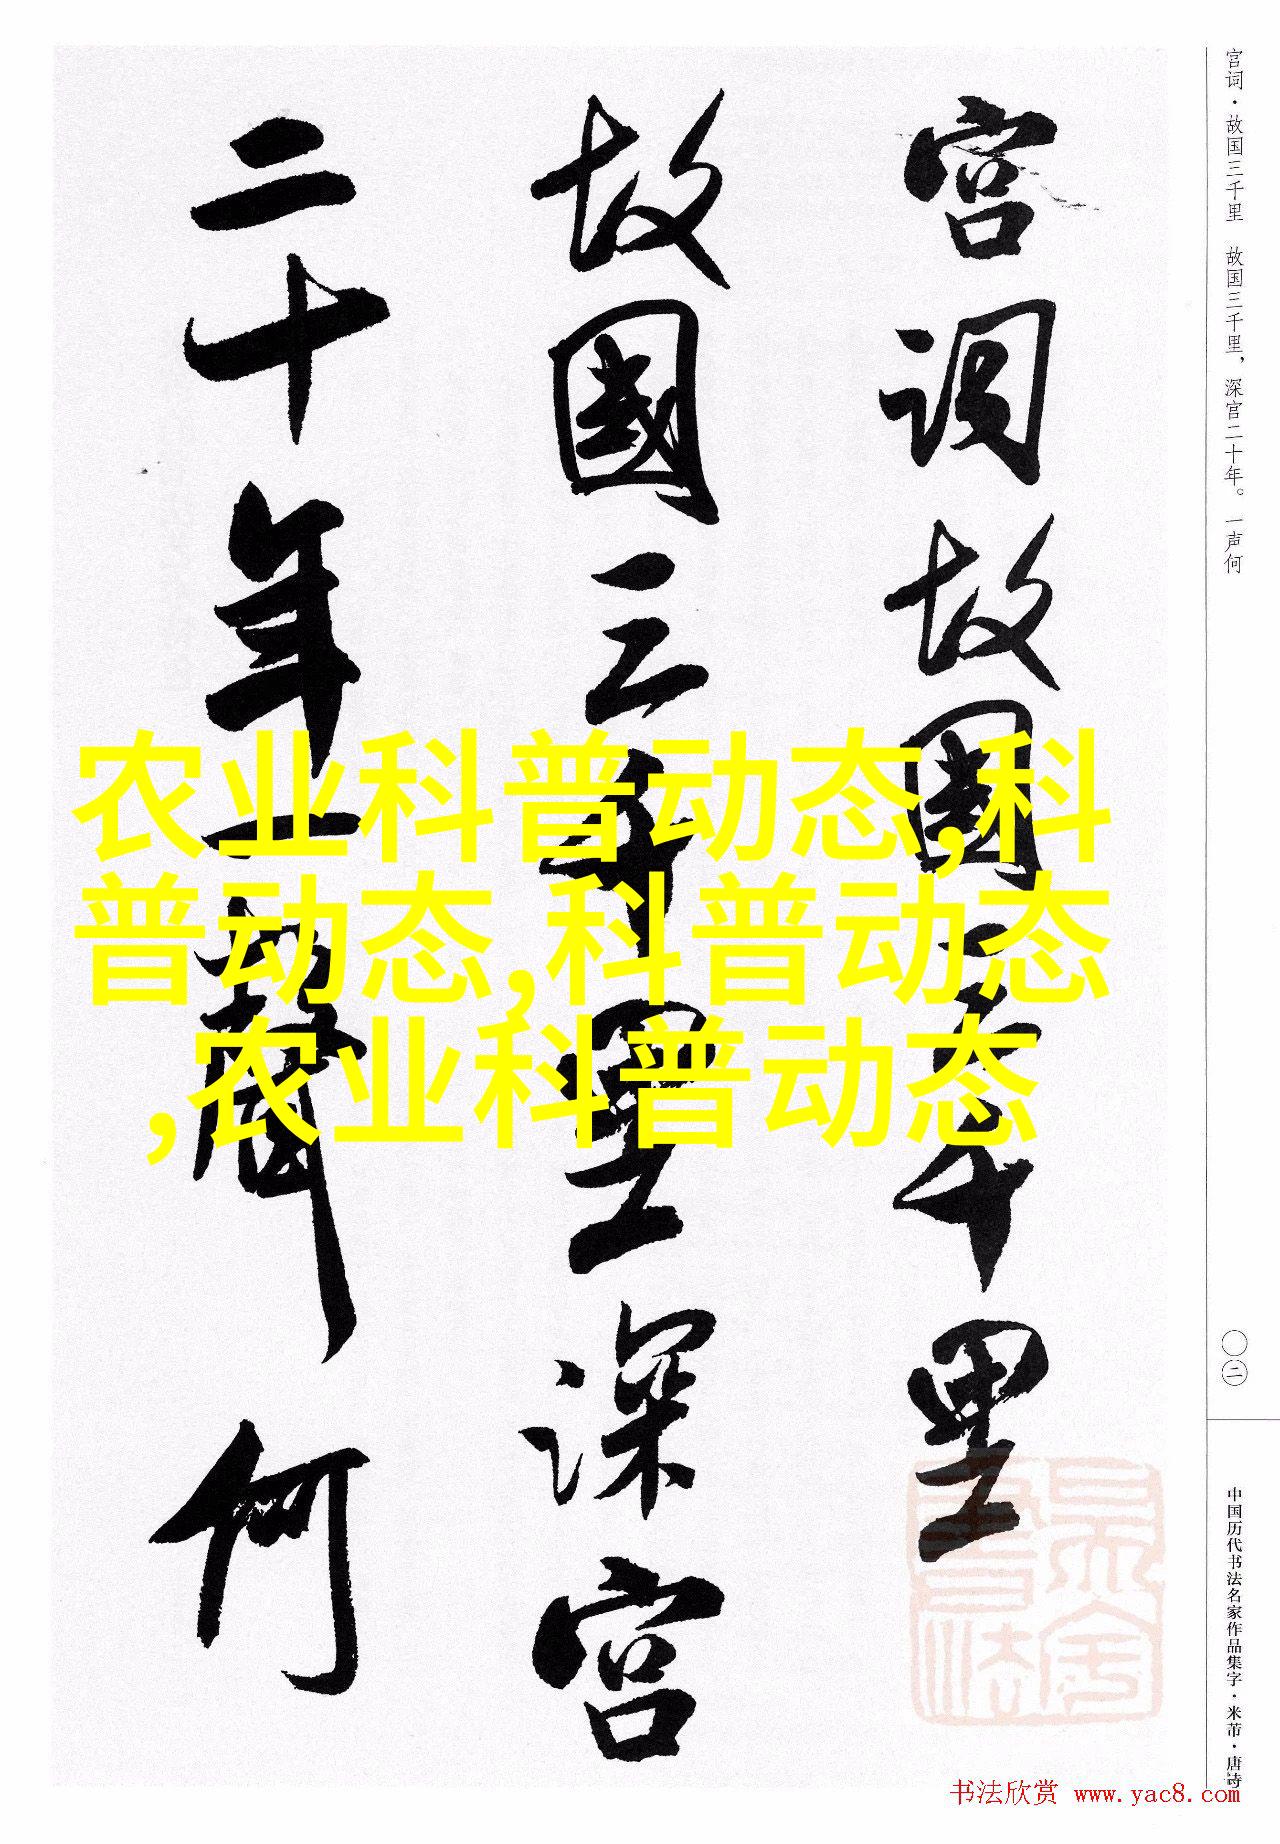 宫词·故国三千里 故国三千里，深宫二十年。一声何
宫词故國三千里
故國三千里深宫
二十年一聲何
农业科普动态,科
普动态,科普动态
,农业科普动态
〇二
中国历代书法名家作品集字·米芾·唐诗
书法欣赏 www.yac8.com